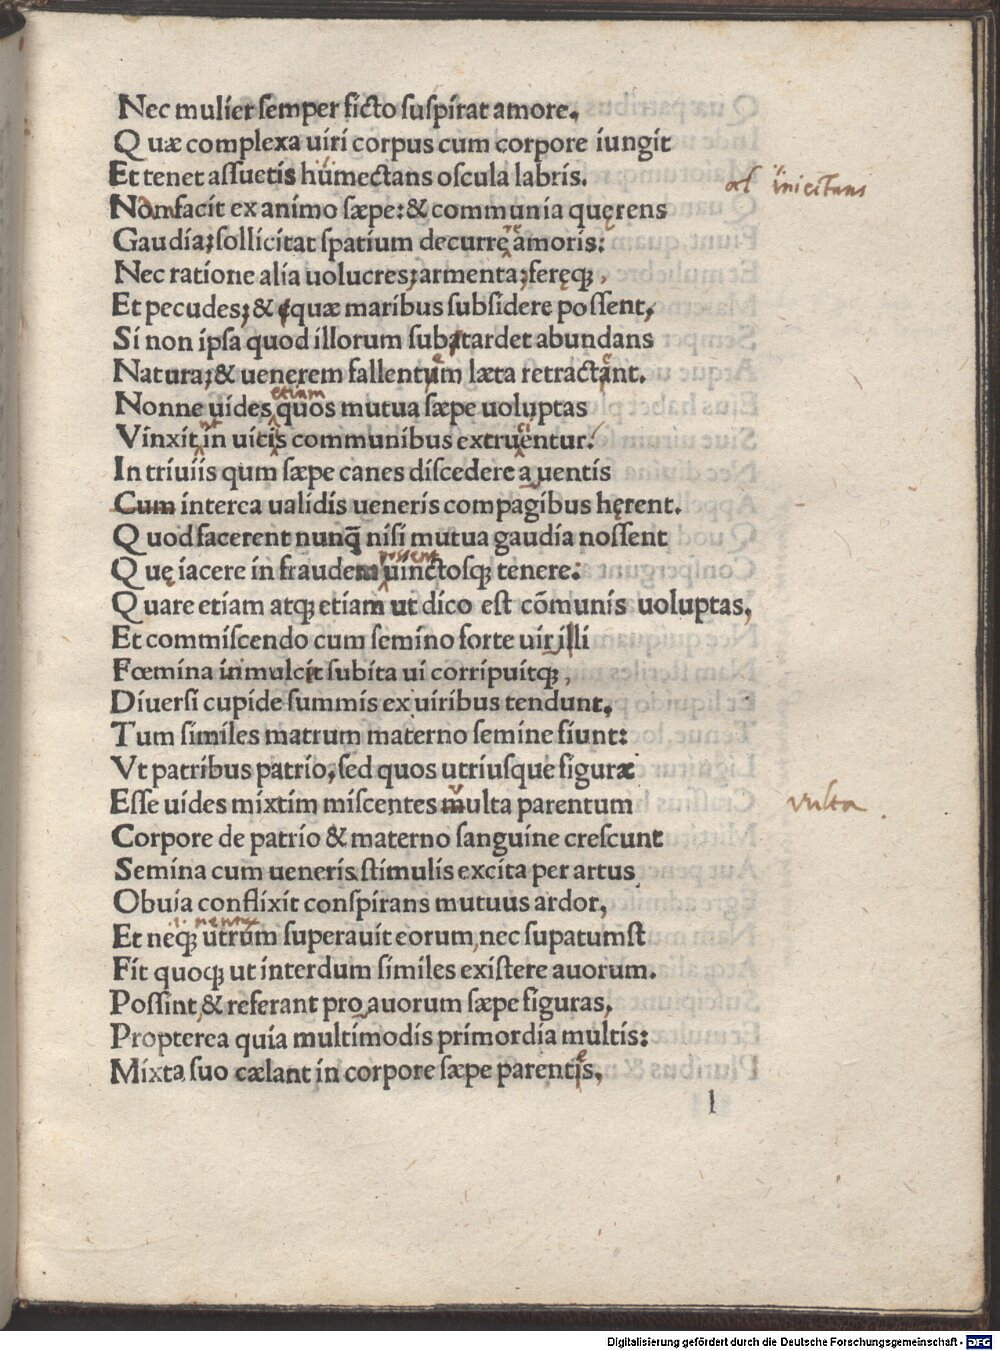 Nec mulier semper ficto suspirat amore.
Quæ complexa uiri corpus cum corpore iungit
Et tenet assuetis humectans oscula labris.
al inicitans
Nam facit ex animo sæpe: & communia quęrens
Gaudia; sollicitat spatium decurrę amoris:
Nec ratione alia uolucres; armenta; feręq;,
Et pecudes; & equæ maribus subsidere possent,
Si non ipsa quod illorum subat ardet abundans
Natura; & uenerem fallentum læta retractant.
etiam
Nonne uides quos mutua sæpe uoluptas
Vinxit in uicis communibus extruentur.
In triuiis qum sæpe canes discedere auentis
Cum interea ualidis ueneris compagibus hęrent.
Quod facerent nunq̃ nisi mutua gaudia nossent
possent
Quę iacere in fraudem uinctosq; tenere:
Quare etiam atq; etiam ut dico est cõmunis uoluptas,
Et commiscendo cum semino forte uirilli
Fœmina inmulcit subita ui corripuitq;,
Diuersi cupide summis ex uiribus tendunt.
Tum similes matrum materno semine fiunt:
Vt patribus patrio, sed quos utriusque figuræ
Esse uides mixtim miscentes multa parentum
vulta
Corpore de patrio & materno sanguine crescunt
Semina cum ueneris stimulis excita per artus
Obuia conflixit conspirans mutuus ardor,
Et neq; utrum superauit eorum, nec supatumst
Fit quoq; ut interdum similes existere auorum.
Possint, & referant pro auorum sæpe figuras.
Propterea quia multimodis primordia multis:
Mixta suo cælant in corpore sæpe parentis.
l
Digitalisierung gefördert durch die Deutsche Forschungsgemeinschaft - DFG